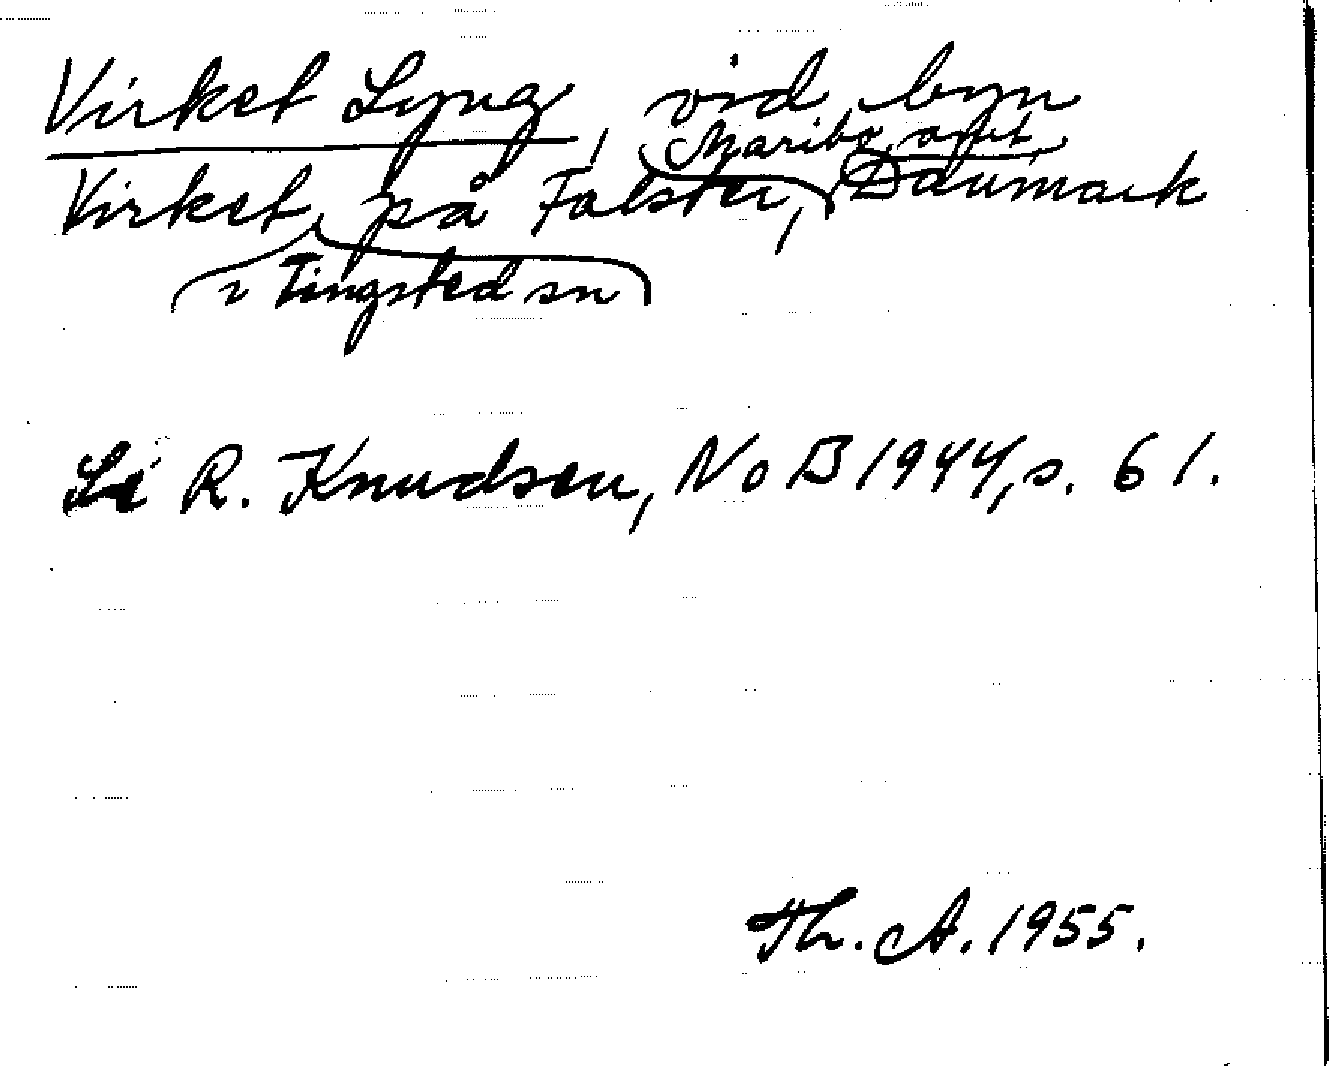 Virket Lyng, vid byn
Maribo amt,
Virket på Falster, Danmark
i Tingsted sn
Se R. Knudsen, NoB 1944, s. 61.
Th. A. 1955.